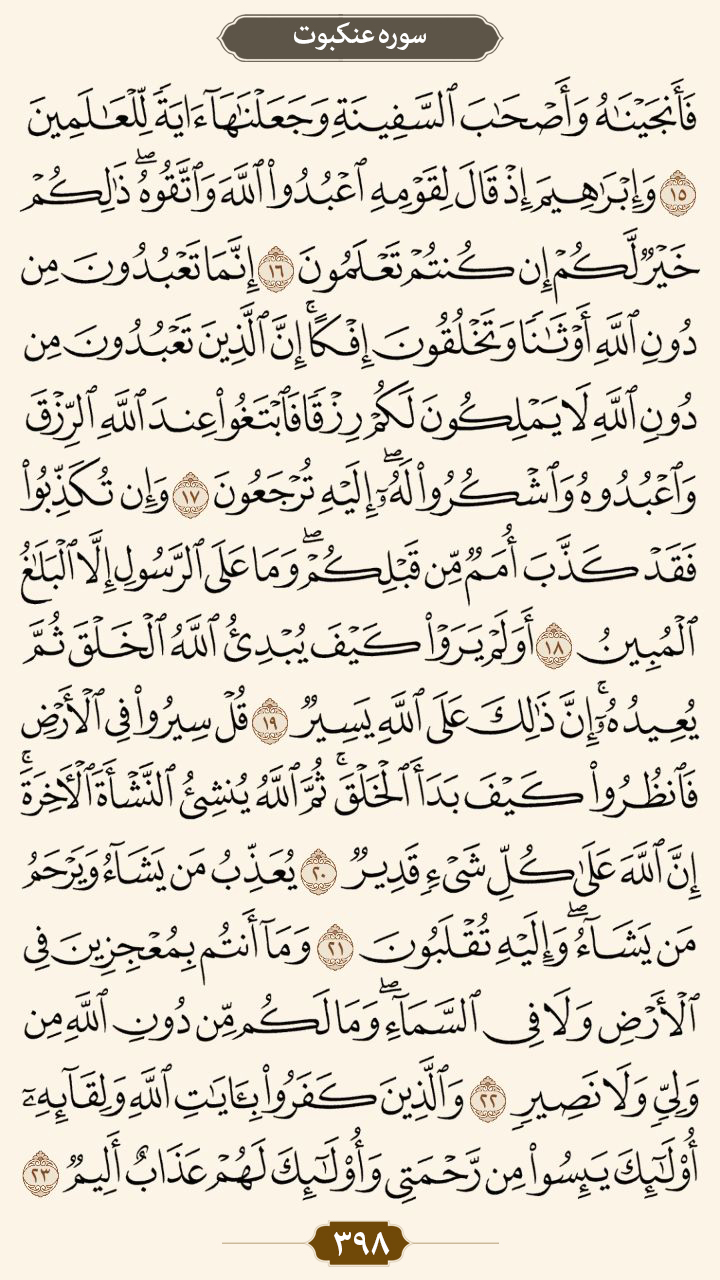 سوره عنکبوت
فَأَنجَيْنَـٰهُ وَأَصْحَـٰبَ ٱلسَّفِينَةِ وَجَعَلْنَـٰهَآ ءَايَةً لِّلْعَـٰلَمِينَ
١٥ وَإِبْرَٰهِيمَ إِذْ قَالَ لِقَوْمِهِ ٱعْبُدُوا۟ ٱللَّهَ وَٱتَّقُوهُ ۖ ذَٰلِكُمْ
خَيْرٌ لَّكُمْ إِن كُنتُمْ تَعْلَمُونَ ١٦ إِنَّمَا تَعْبُدُونَ مِن
دُونِ ٱللَّهِ أَوْثَـٰنًا وَتَخْلُقُونَ إِفْكًا ۚ إِنَّ ٱلَّذِينَ تَعْبُدُونَ مِن
دُونِ ٱللَّهِ لَا يَمْلِكُونَ لَكُمْ رِزْقًا فَٱبْتَغُوا۟ عِندَ ٱللَّهِ ٱلرِّزْقَ
وَٱعْبُدُوهُ وَٱشْكُرُوا۟ لَهُۥٓ ۖ إِلَيْهِ تُرْجَعُونَ ١٧ وَإِن تُكَذِّبُوا۟
فَقَدْ كَذَّبَ أُمَمٌ مِّن قَبْلِكُمْ ۖ وَمَا عَلَى ٱلرَّسُولِ إِلَّا ٱلْبَلَـٰغُ
ٱلْمُبِينُ ١٨ أَوَلَمْ يَرَوْا۟ كَيْفَ يُبْدِئُ ٱللَّهُ ٱلْخَلْقَ ثُمَّ
يُعِيدُهُۥٓ ۚ إِنَّ ذَٰلِكَ عَلَى ٱللَّهِ يَسِيرٌ ١٩ قُلْ سِيرُوا۟ فِى ٱلْأَرْضِ
فَٱنظُرُوا۟ كَيْفَ بَدَأَ ٱلْخَلْقَ ۚ ثُمَّ ٱللَّهُ يُنشِئُ ٱلنَّشْأَةَ ٱلْـَٔاخِرَةَ ۚ
إِنَّ ٱللَّهَ عَلَىٰ كُلِّ شَىْءٍ قَدِيرٌ ٢٠ يُعَذِّبُ مَن يَشَآءُ وَيَرْحَمُ
مَن يَشَآءُ ۖ وَإِلَيْهِ تُقْلَبُونَ ٢١ وَمَآ أَنتُم بِمُعْجِزِينَ فِى
ٱلْأَرْضِ وَلَا فِى ٱلسَّمَآءِ ۖ وَمَا لَكُم مِّن دُونِ ٱللَّهِ مِن
وَلِىٍّ وَلَا نَصِيرٍ ٢٢ وَٱلَّذِينَ كَفَرُوا۟ بِـَٔايَـٰتِ ٱللَّهِ وَلِقَآئِهِۦٓ
أُو۟لَـٰٓئِكَ يَئِسُوا۟ مِن رَّحْمَتِى وَأُو۟لَـٰٓئِكَ لَهُمْ عَذَابٌ أَلِيمٌ ٢٣
٣٩٨